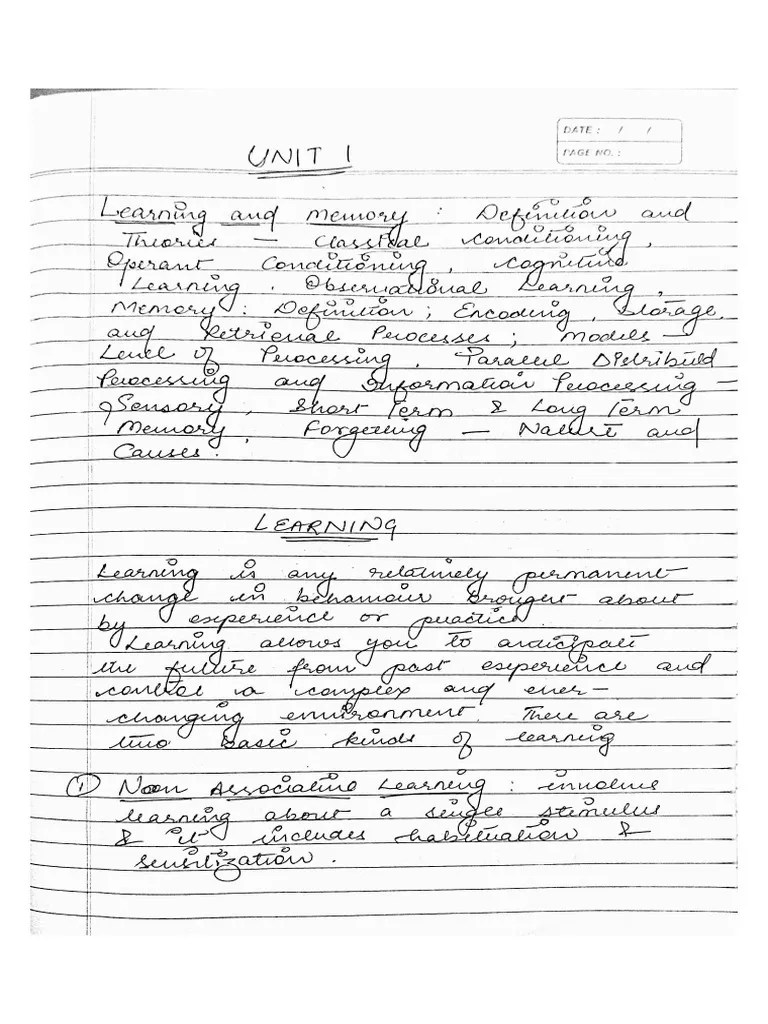 DATE : / /
PAGE NO. :
UNIT 1
Learning and Memory : Definition and
Theories — Classical conditioning,
Operant Conditioning, Cognitive
Learning. Observational Learning,
Memory : Definition ; Encoding, Storage,
and Retrieval Processes ; Models —
Level of Processing, Parallel Distributed
Processing and Information Processing —
Sensory, Short Term & Long Term
Memory, Forgetting — Nature and
Causes.
LEARNING
Learning is any relatively permanent
change in behaviour brought about
by experience or practice.
Learning allows you to anticipate
the future from past experience and
control a complex and ever-
changing environment. There are
two basic kinds of learning
① Non Associative Learning : involve
learning about a single stimulus
& it includes habituation &
sensitization.